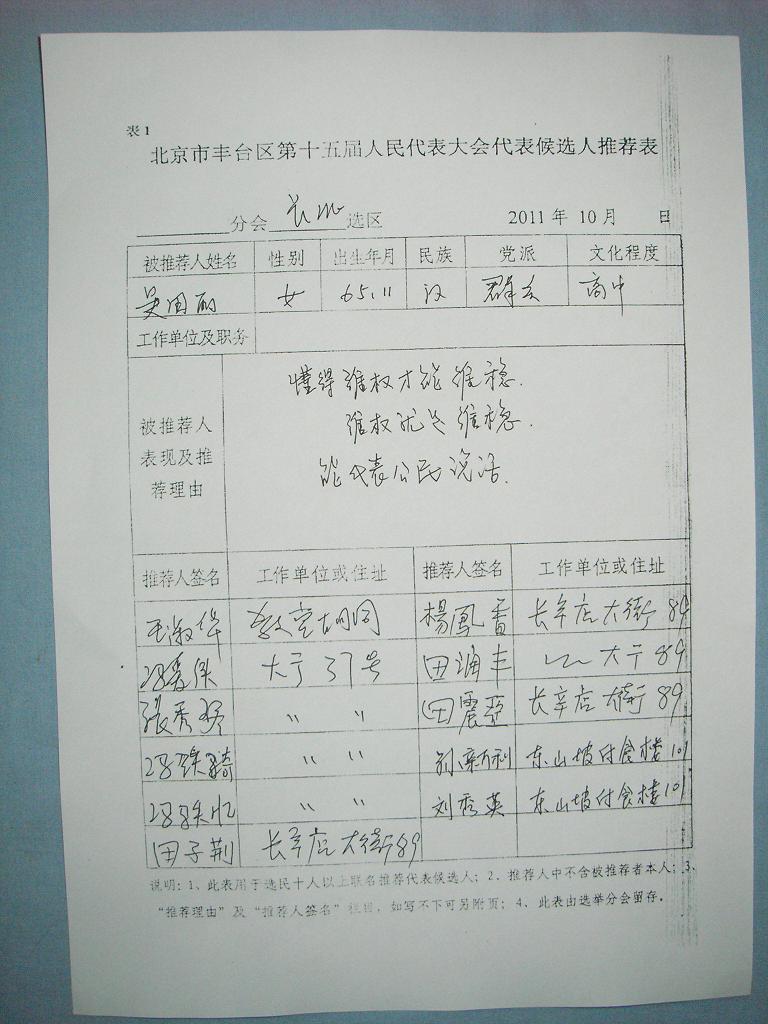 表1
北京市丰台区第十五届人民代表大会代表候选人推荐表
分会 选区 2011 年 10 月 日
被推荐人姓名 性别 出生年月 民族 党派 文化程度
吴国丽 女 65.11 汉 群众 高中
工作单位及职务
被推荐人表现及推荐理由
懂得维权才能维稳.
维权就是维稳.
能代表公民说话.
推荐人签名 工作单位或住址 推荐人签名 工作单位或住址
教堂胡同 楊鳳香 长辛店大街 89
大于 37号 田浦丰 大于 89
張秀琴 〃 〃 田震亞 长辛店大街 89
〃 〃 利 东山坡付食楼 101
〃 〃 刘秀英 东山坡付食楼 101
田子荆 长辛店大街89
说明：1、此表用于选民十人以上联名推荐代表候选人；2、推荐人中不含被推荐者本人；3、
“推荐理由”及“推荐人签名”栏目，如写不下可另附页；4、此表由选举分会留存。